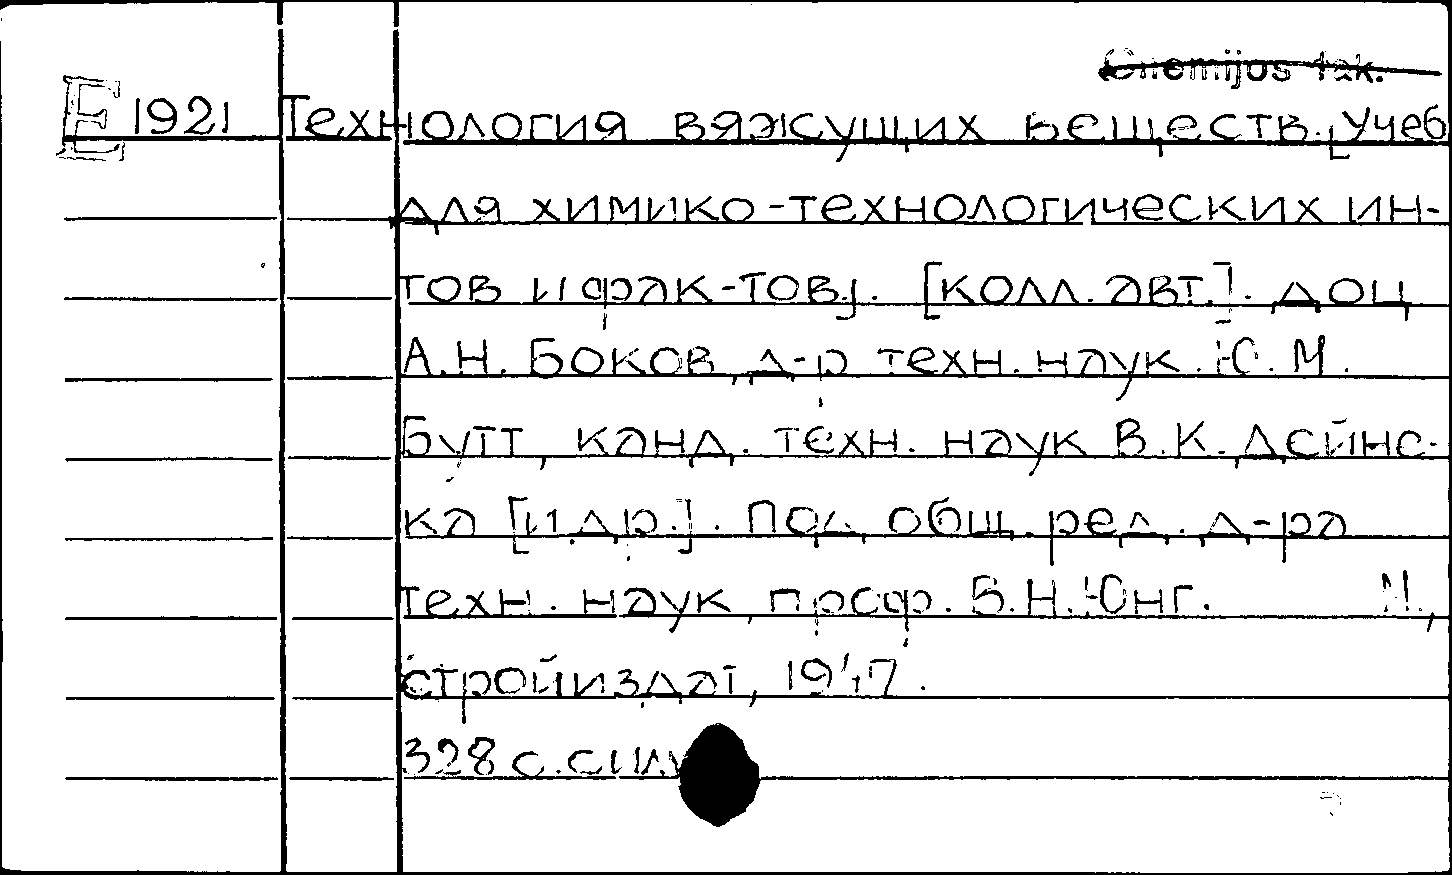 Chemijos fak.
E 1921 Технология вяжущих веществ. [Учеб
для химико-технологических ин-
тов и фак-тов]. [Колл. авт.]. Доц
А.Н. Боков, д-р техн. наук. Ю.М.
Бутт, канд. техн. наук В.К. Дейнe-
ка [и др.]. Под общ. ред. д-ра
техн. наук, проф. В.Н. Юнг. М.,
стройиздат, 1947.
328 с. с ил